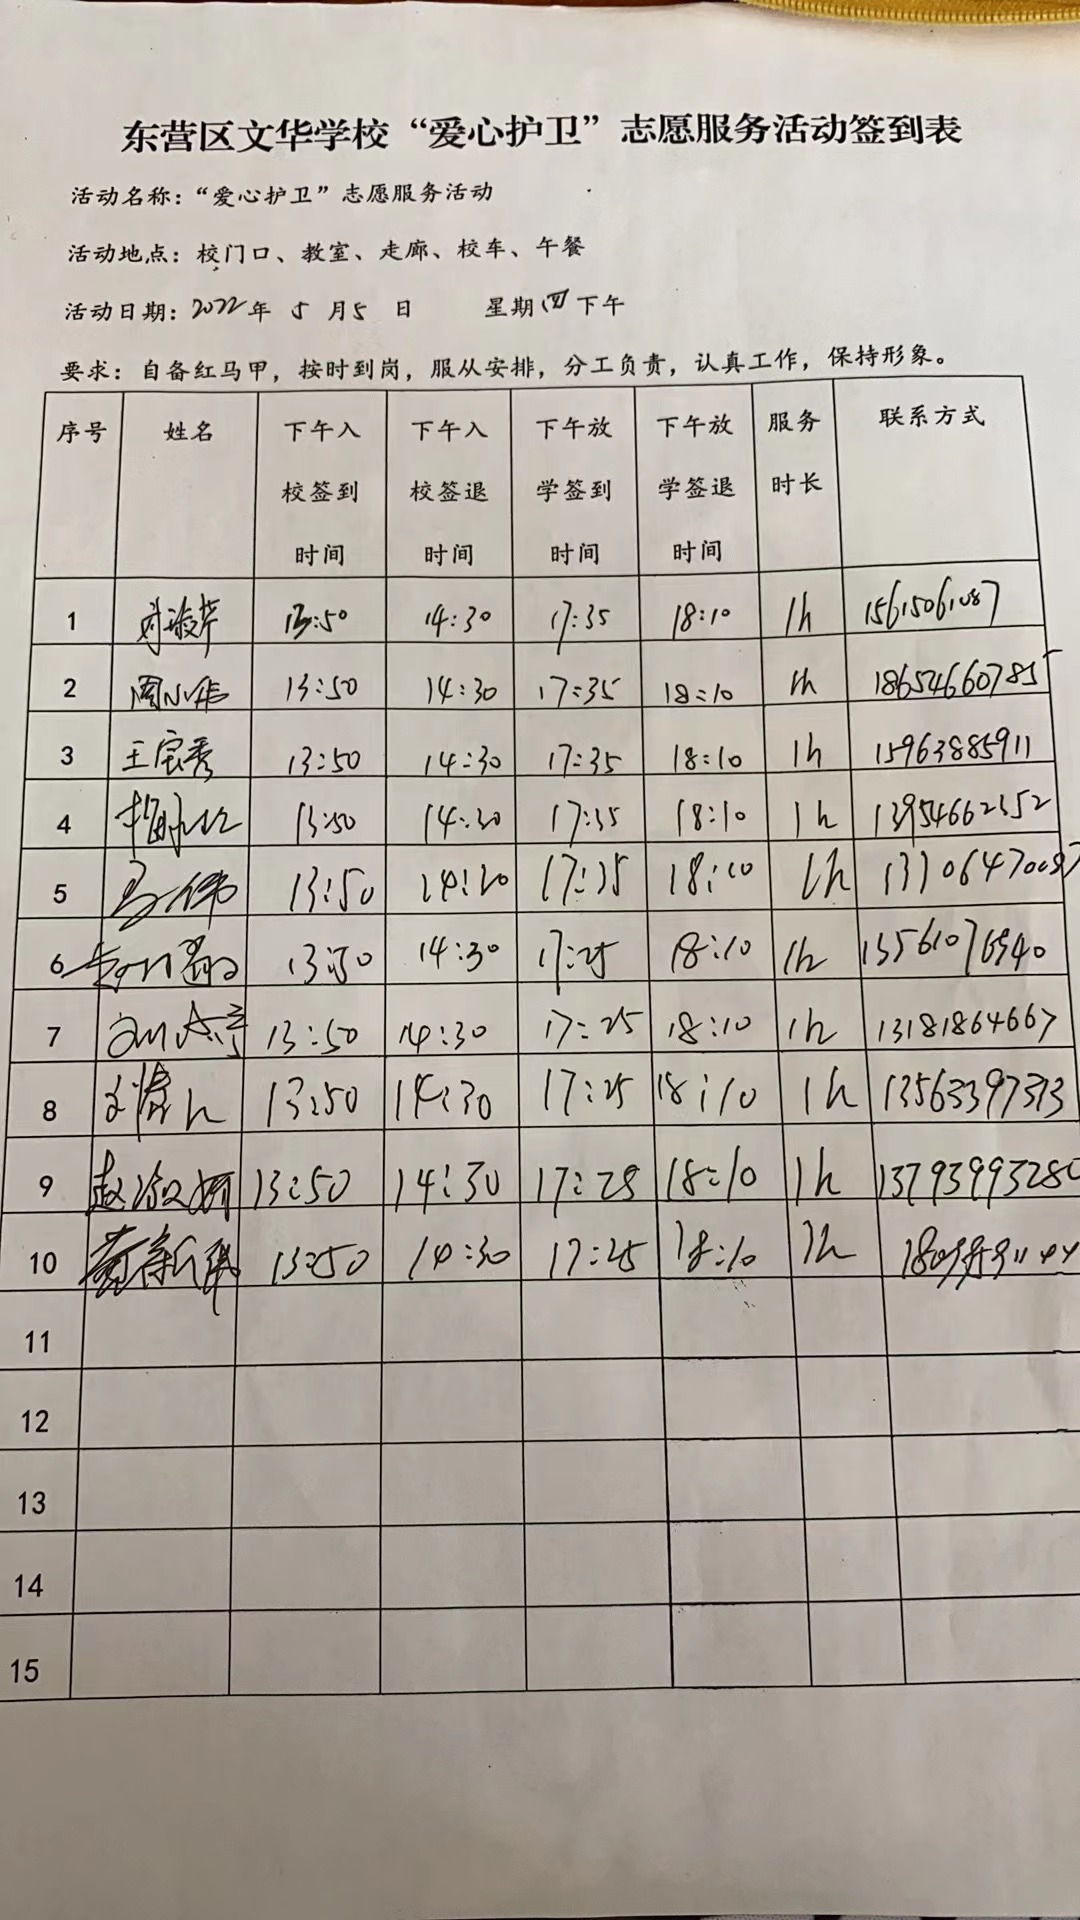 东营区文华学校“爱心护卫”志愿服务活动签到表
活动名称：“爱心护卫”志愿服务活动
活动地点：校门口、教室、走廊、校车、午餐
活动日期：2022年 5 月5 日 星期四下午
要求：自备红马甲，按时到岗，服从安排，分工负责，认真工作，保持形象。
序号 姓名 下午入校签到时间 下午入校签退时间 下午放学签到时间 下午放学签退时间 服务时长 联系方式
1 13:50 14:30 17:35 18:10 1h 15615061087
2 13:50 14:30 17:35 18:10 1h 18654660785
3 王宝秀 13:50 14:30 17:35 18:10 1h 15963885911
4 13:50 14:30 17:35 18:10 1h 13954662352
5 马伟 13:50 14:30 17:35 18:10 1h
6 13:50 14:30 17:25 18:10 1h 13561076940
7 13:50 14:30 17:25 18:10 1h 13181864667
8 13:50 14:30 17:25 18:10 1h 13563397313
9 赵淑娟 13:50 14:30 17:25 18:10 1h 13793993280
10 13:50 14:30 17:25 18:10 1h
11
12
13
14
15